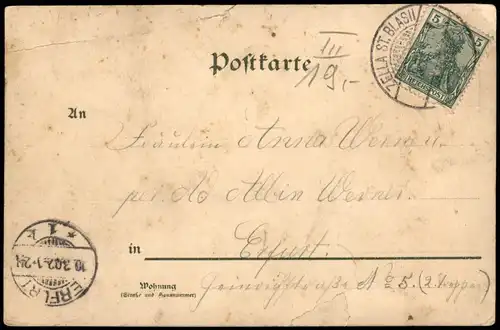 ZELLA ST. BLASII
5 5
Postkarte
III
19,-
An
Fräulein Anna Werner
per Ad. Albin Werner
in Erfurt.
Wohnung
(Straße und Hausnummer)
Heinrichstraße No 5. (2 Treppen)
ERFURT
10.3.02. 1-2N
* 1 k